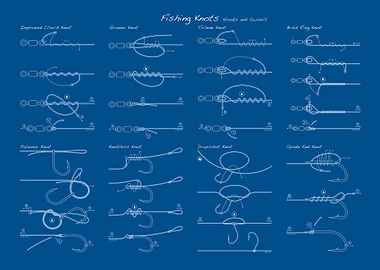 Fishing Knots Hooks and Swivels
Improved Clinch Knot
Grinner Knot
Trilene Knot
Braid Ring Knot
Palomar Knot
Knotless Knot
Dropshot Knot
Spade End Knot